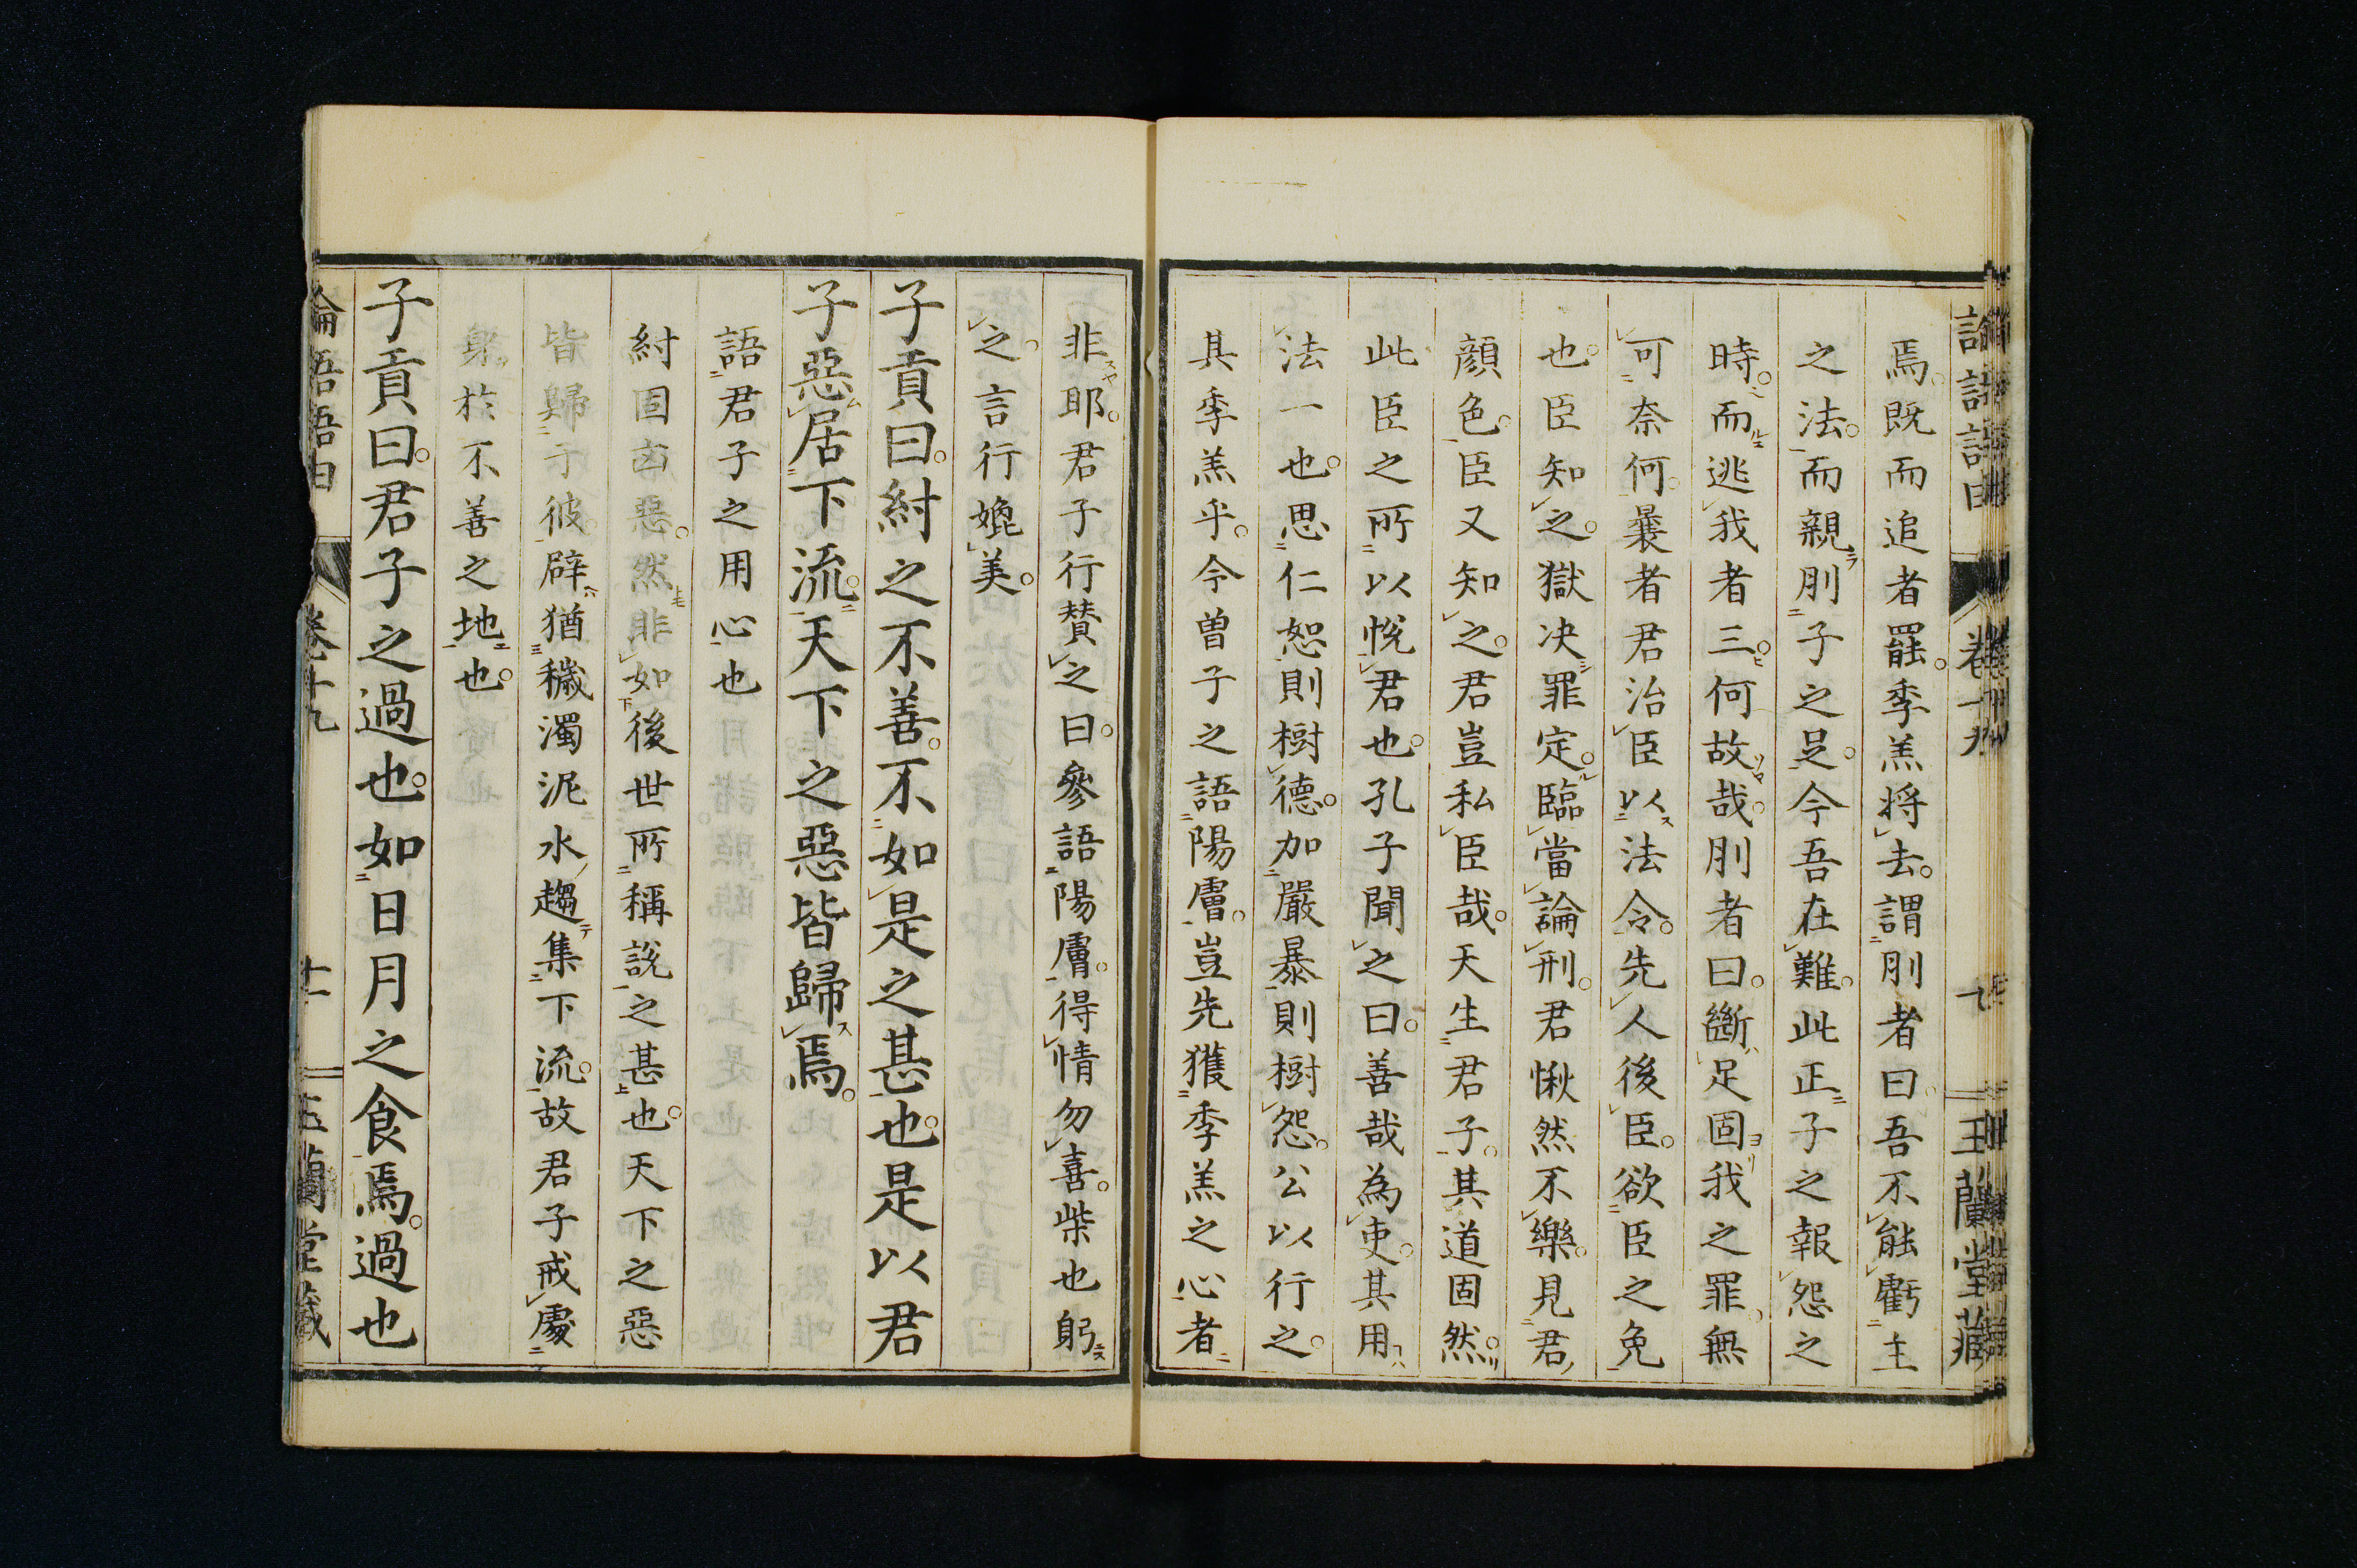 焉。既而追者罷。季羔将去。謂刖者曰吾不能虧主
之法。而親刖子之足。今吾在難。此正子之報怨之
時。而逃我者三。何故哉。刖者曰。斷足固我之罪。無
可奈何。曩者君治臣以法令。先人後臣。欲臣之免
也。臣知之。獄决罪定。臨當論刑。君愀然不樂。見君
顔色。臣又知之。君豈私臣哉。天生君子。其道固然。
此臣之所以悅君也。孔子聞之曰。善哉為吏。其用
法一也。思仁恕則樹德。加嚴暴則樹怨。公以行之。
其季羔乎。今曽子之語陽膚。豈先獲季羔之心者
非耶。君子行賛之曰。參語陽膚。得情勿喜。柴也躬
之。言行媲美。
子貢曰。紂之不善。不如是之甚也。是以君
子惡居下流。天下之惡皆歸焉。
語君子之用心也
紂固凶惡。然非如後世所稱説之甚也。天下之惡
皆歸于彼。辟猶穢濁泥水趨集下流。故君子戒處
身於不善之地也。
子貢曰。君子之過也。如日月之食焉。過也
論語語由 卷十九 十一 玉蘭堂藏